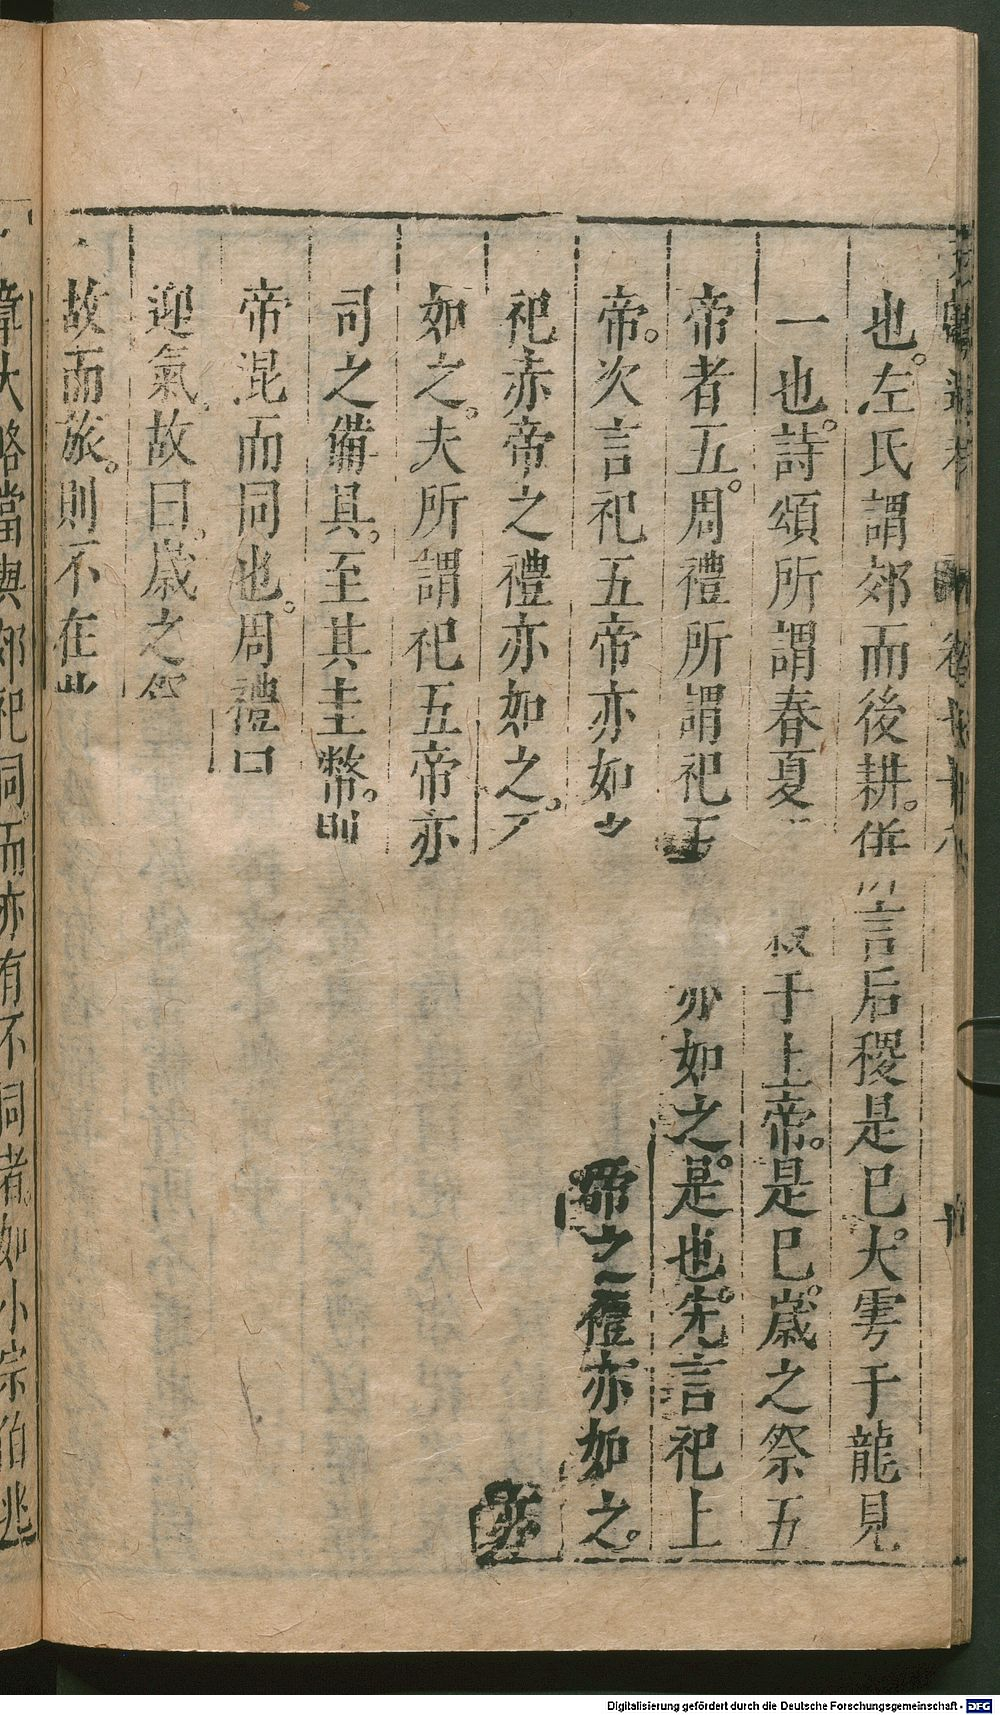 也。左氏謂郊而後耕。併言后稷是巳。大雩于龍見
一也。詩頌所謂春夏于上帝。是巳。歲之祭五
帝者五。周禮所謂祀亦如之。是也。先言祀上
帝。次言祀五帝亦如帝之禮亦如之。
祀赤帝之禮亦如之。亦
如之。夫所謂祀五帝亦
司之備具。至其圭幣。則
帝混而同也。周禮曰
迎氣。故曰。歲之
故而旅。則不在此
章大略當與郊祀同。而亦有不同者。如小宗伯兆
Digitalisierung gefördert durch die Deutsche Forschungsgemeinschaft - DFG